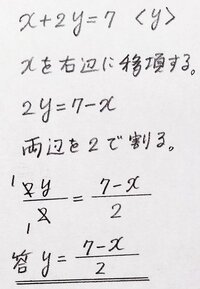 x+2y=7 〈y〉
xを右辺に移項する。
2y=7-x
両辺を2で割る。
¹2y/2₁ = 7-x/2
答 y= 7-x/2